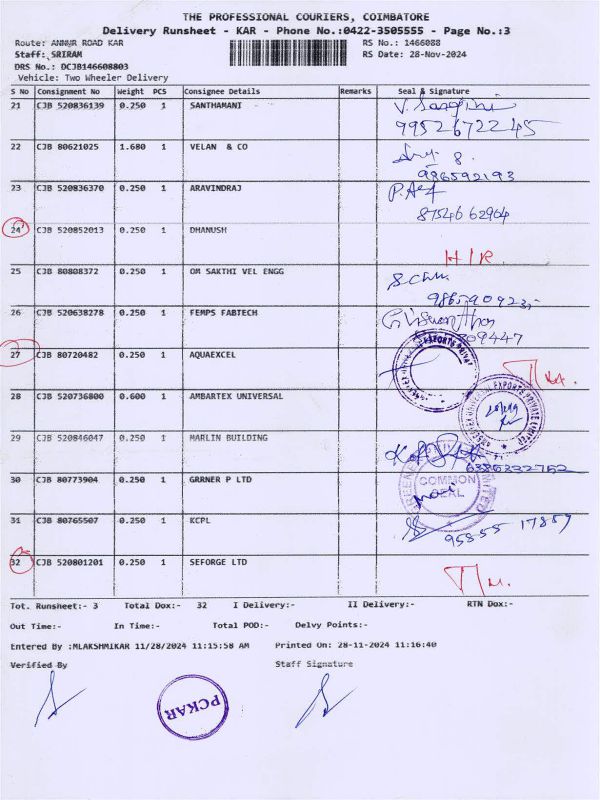 THE PROFESSIONAL COURIERS, COIMBATORE
Delivery Runsheet - KAR - Phone No.:0422-3505555 - Page No.:3
Route: ANNUR ROAD KAR RS No.: 1466088
Staff: SRIRAM RS Date: 28-Nov-2024
DRS No.: DCJB146608803
Vehicle: Two Wheeler Delivery
S No Consignment No Weight PCS Consignee Details Remarks Seal & Signature
21 CJB 520836139 0.250 1 SANTHAMANI
9952672245
22 CJB 80621025 1.680 1 VELAN & CO
986592193
23 CJB 520836370 0.250 1 ARAVINDRAJ
8754662904
24 CJB 520852013 0.250 1 DHANUSH
25 CJB 80808372 0.250 1 OM SAKTHI VEL ENGG
26 CJB 520638278 0.250 1 FEMPS FABTECH
27 CJB 80720482 0.250 1 AQUAEXCEL
28 CJB 520736800 0.600 1 AMBARTEX UNIVERSAL
29 CJB 520846047 0.250 1 MARLIN BUILDING
6386332752
30 CJB 80773904 0.250 1 GRRNER P LTD
COMMON SEAL
31 CJB 80765507 0.250 1 KCPL
95855 17857
32 CJB 520801201 0.250 1 SEFORGE LTD
Tot. Runsheet:- 3 Total Dox:- 32 I Delivery:- II Delivery:- RTN Dox:-
Out Time:- In Time:- Total POD:- Delvy Points:-
Entered By :MLAKSHMIKAR 11/28/2024 11:15:58 AM Printed On: 28-11-2024 11:16:40
Verified By Staff Signature
PCKAR